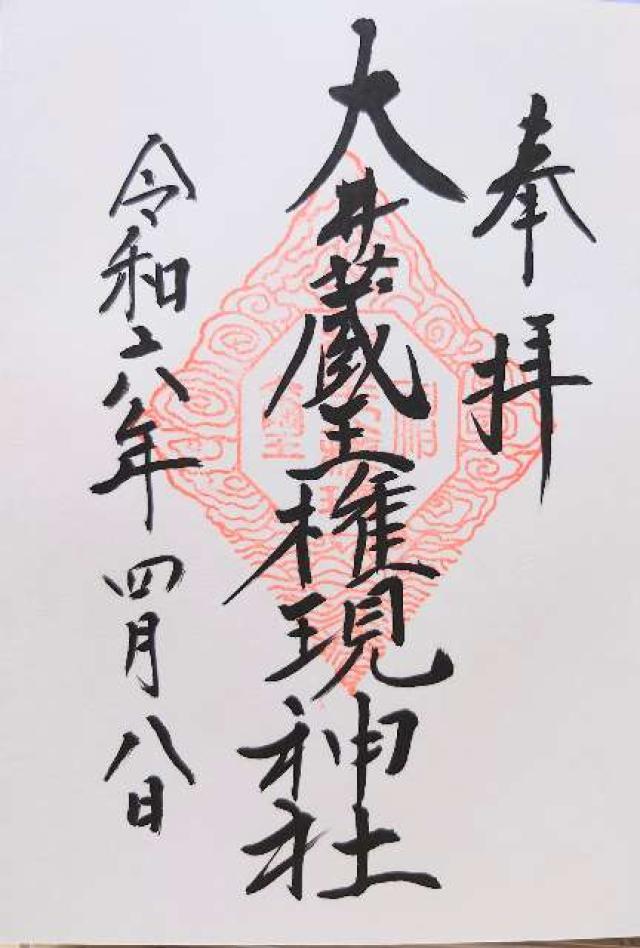 奉拝
大井蔵王権現神社
令和六年四月八日